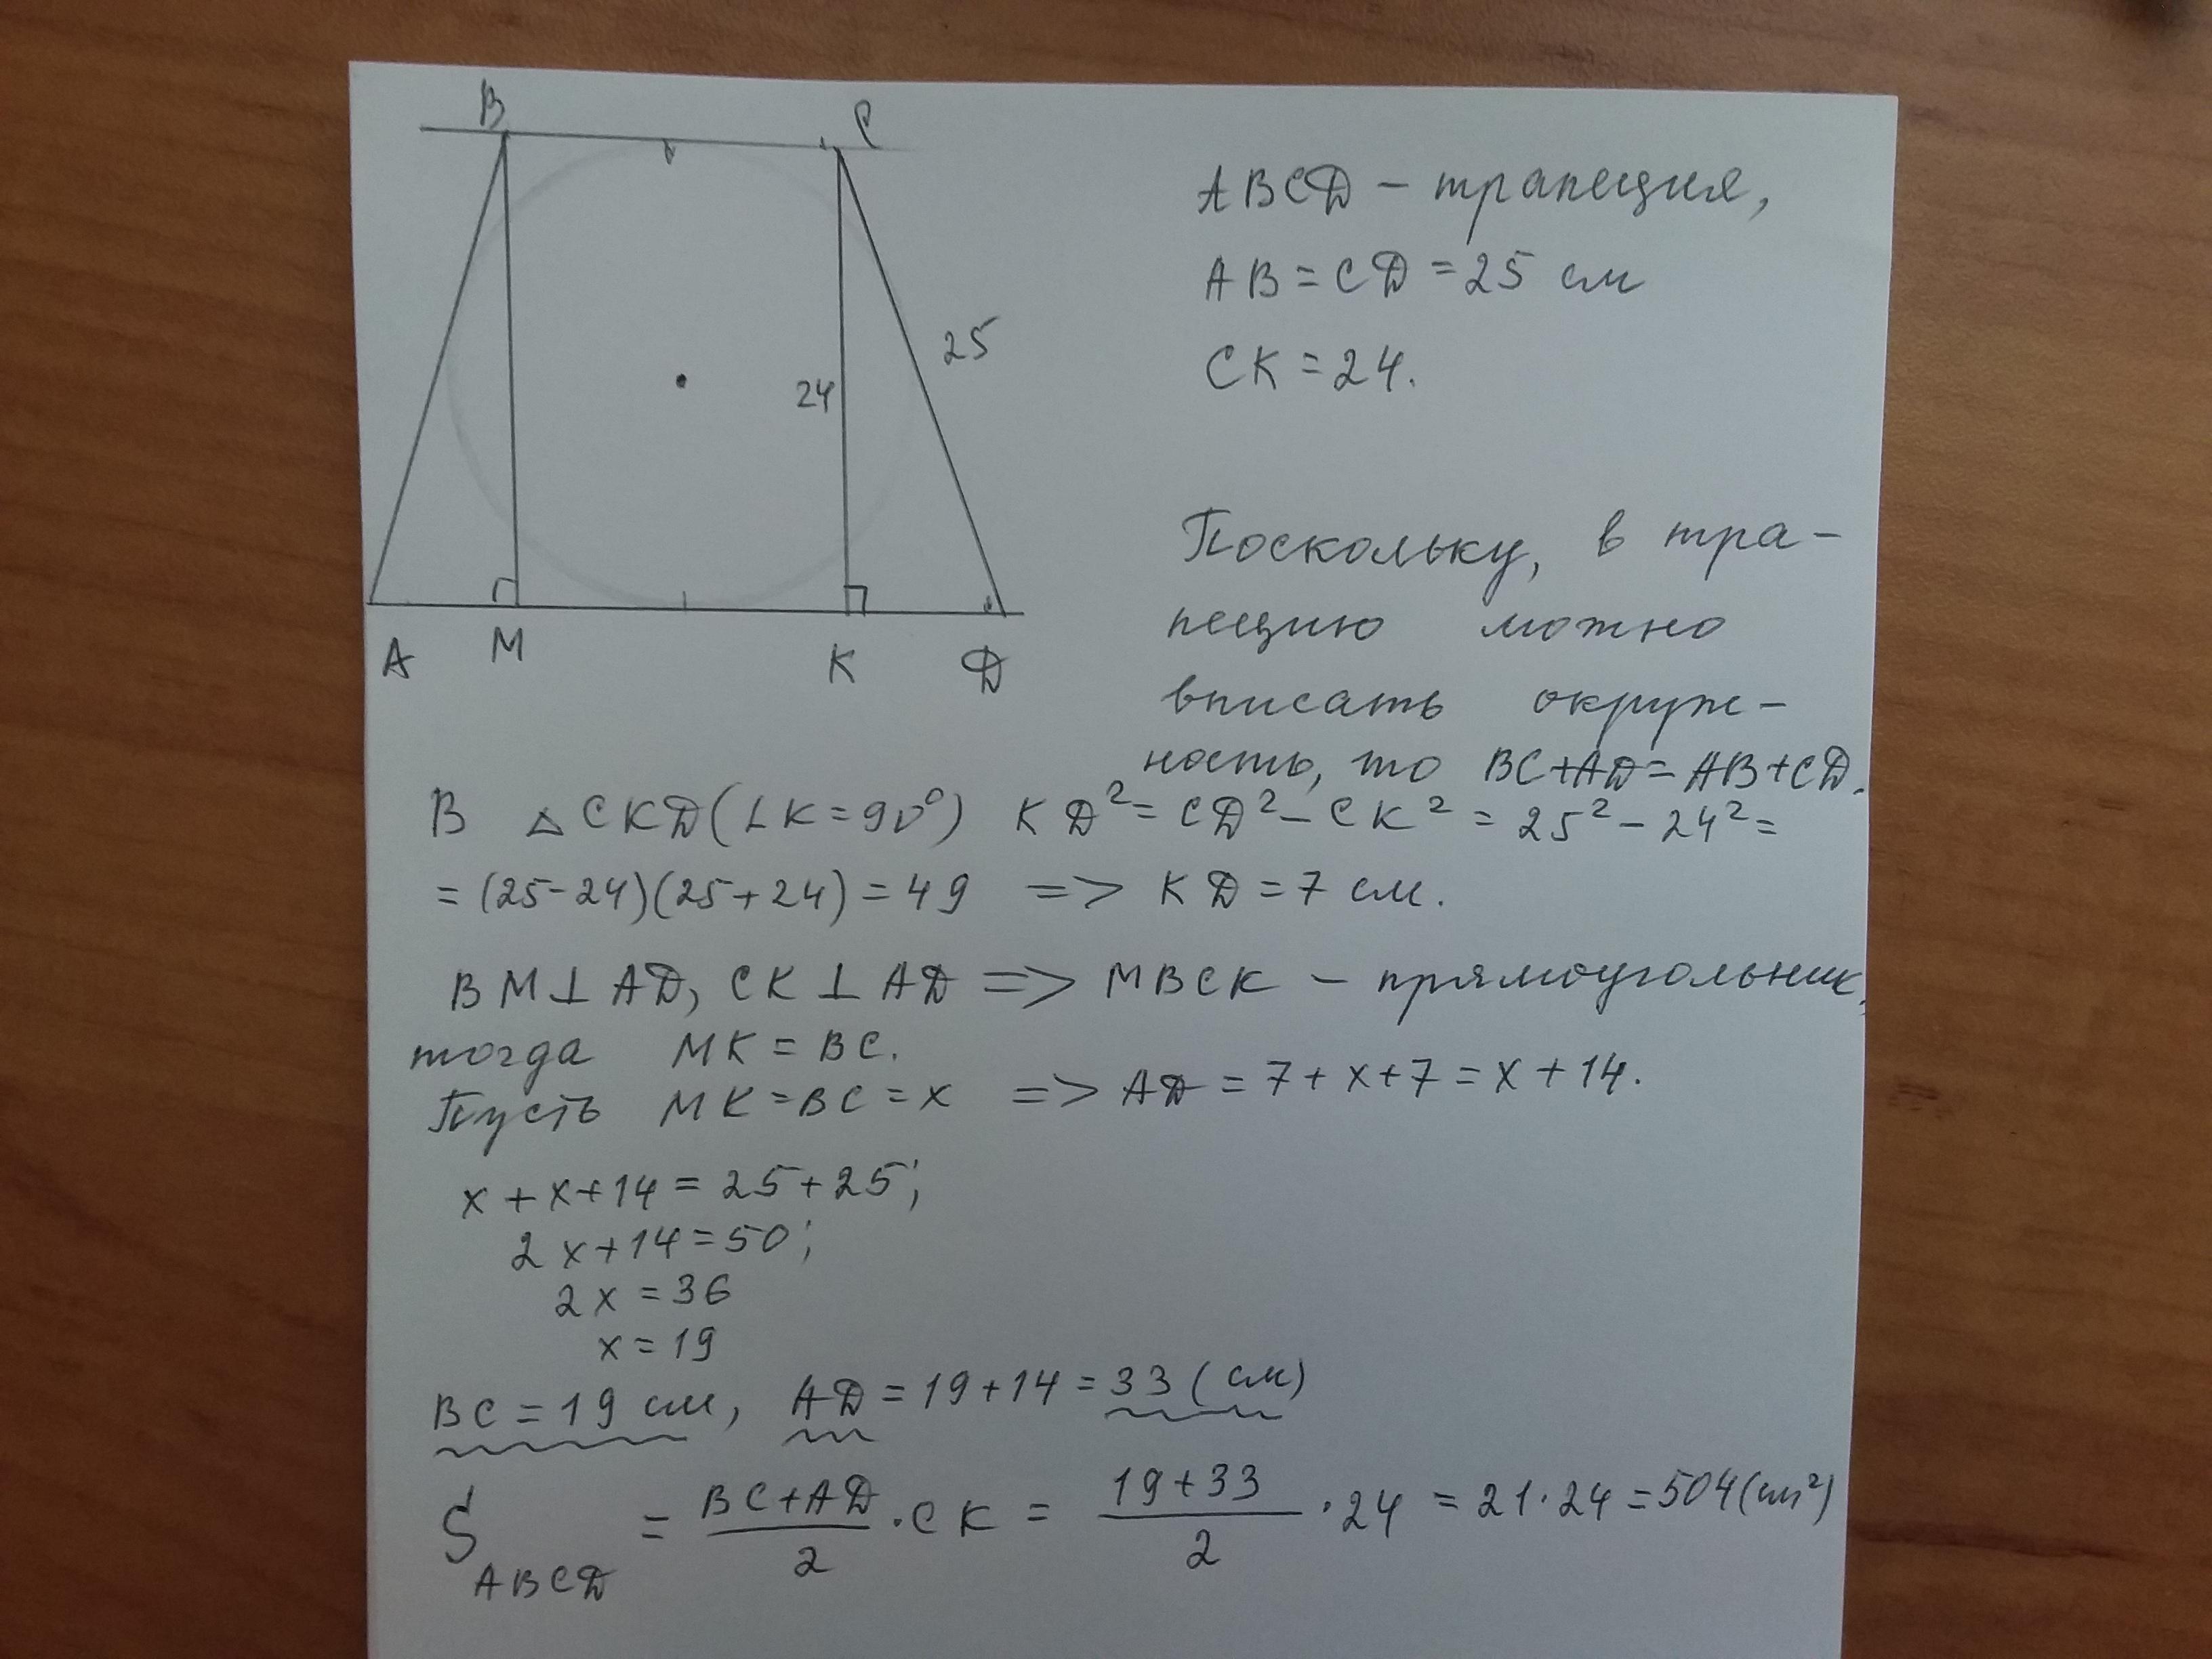 B C
25
24
A M K D
ABCD – трапеция,
AB = CD = 25 см
CK = 24.
Поскольку, в тра-
пецию можно
вписать окруж-
ность, то BC+AD=AB+CD.
В △CKD(∠K=90°) KD²=CD²–CK²=25²–24²=
=(25-24)(25+24)=49 => KD=7 см.
BM⊥AD, CK⊥AD => MBCK – прямоугольник,
тогда MK=BC.
Пусть MK=BC=x => AD=7+x+7=x+14.
x+x+14=25+25;
2x+14=50;
2x=36
x=19
BC=19 см, AD=19+14=33(см)
S ABCD = (BC+AD)/2 · CK = (19+33)/2 · 24 = 21·24=504(см²)